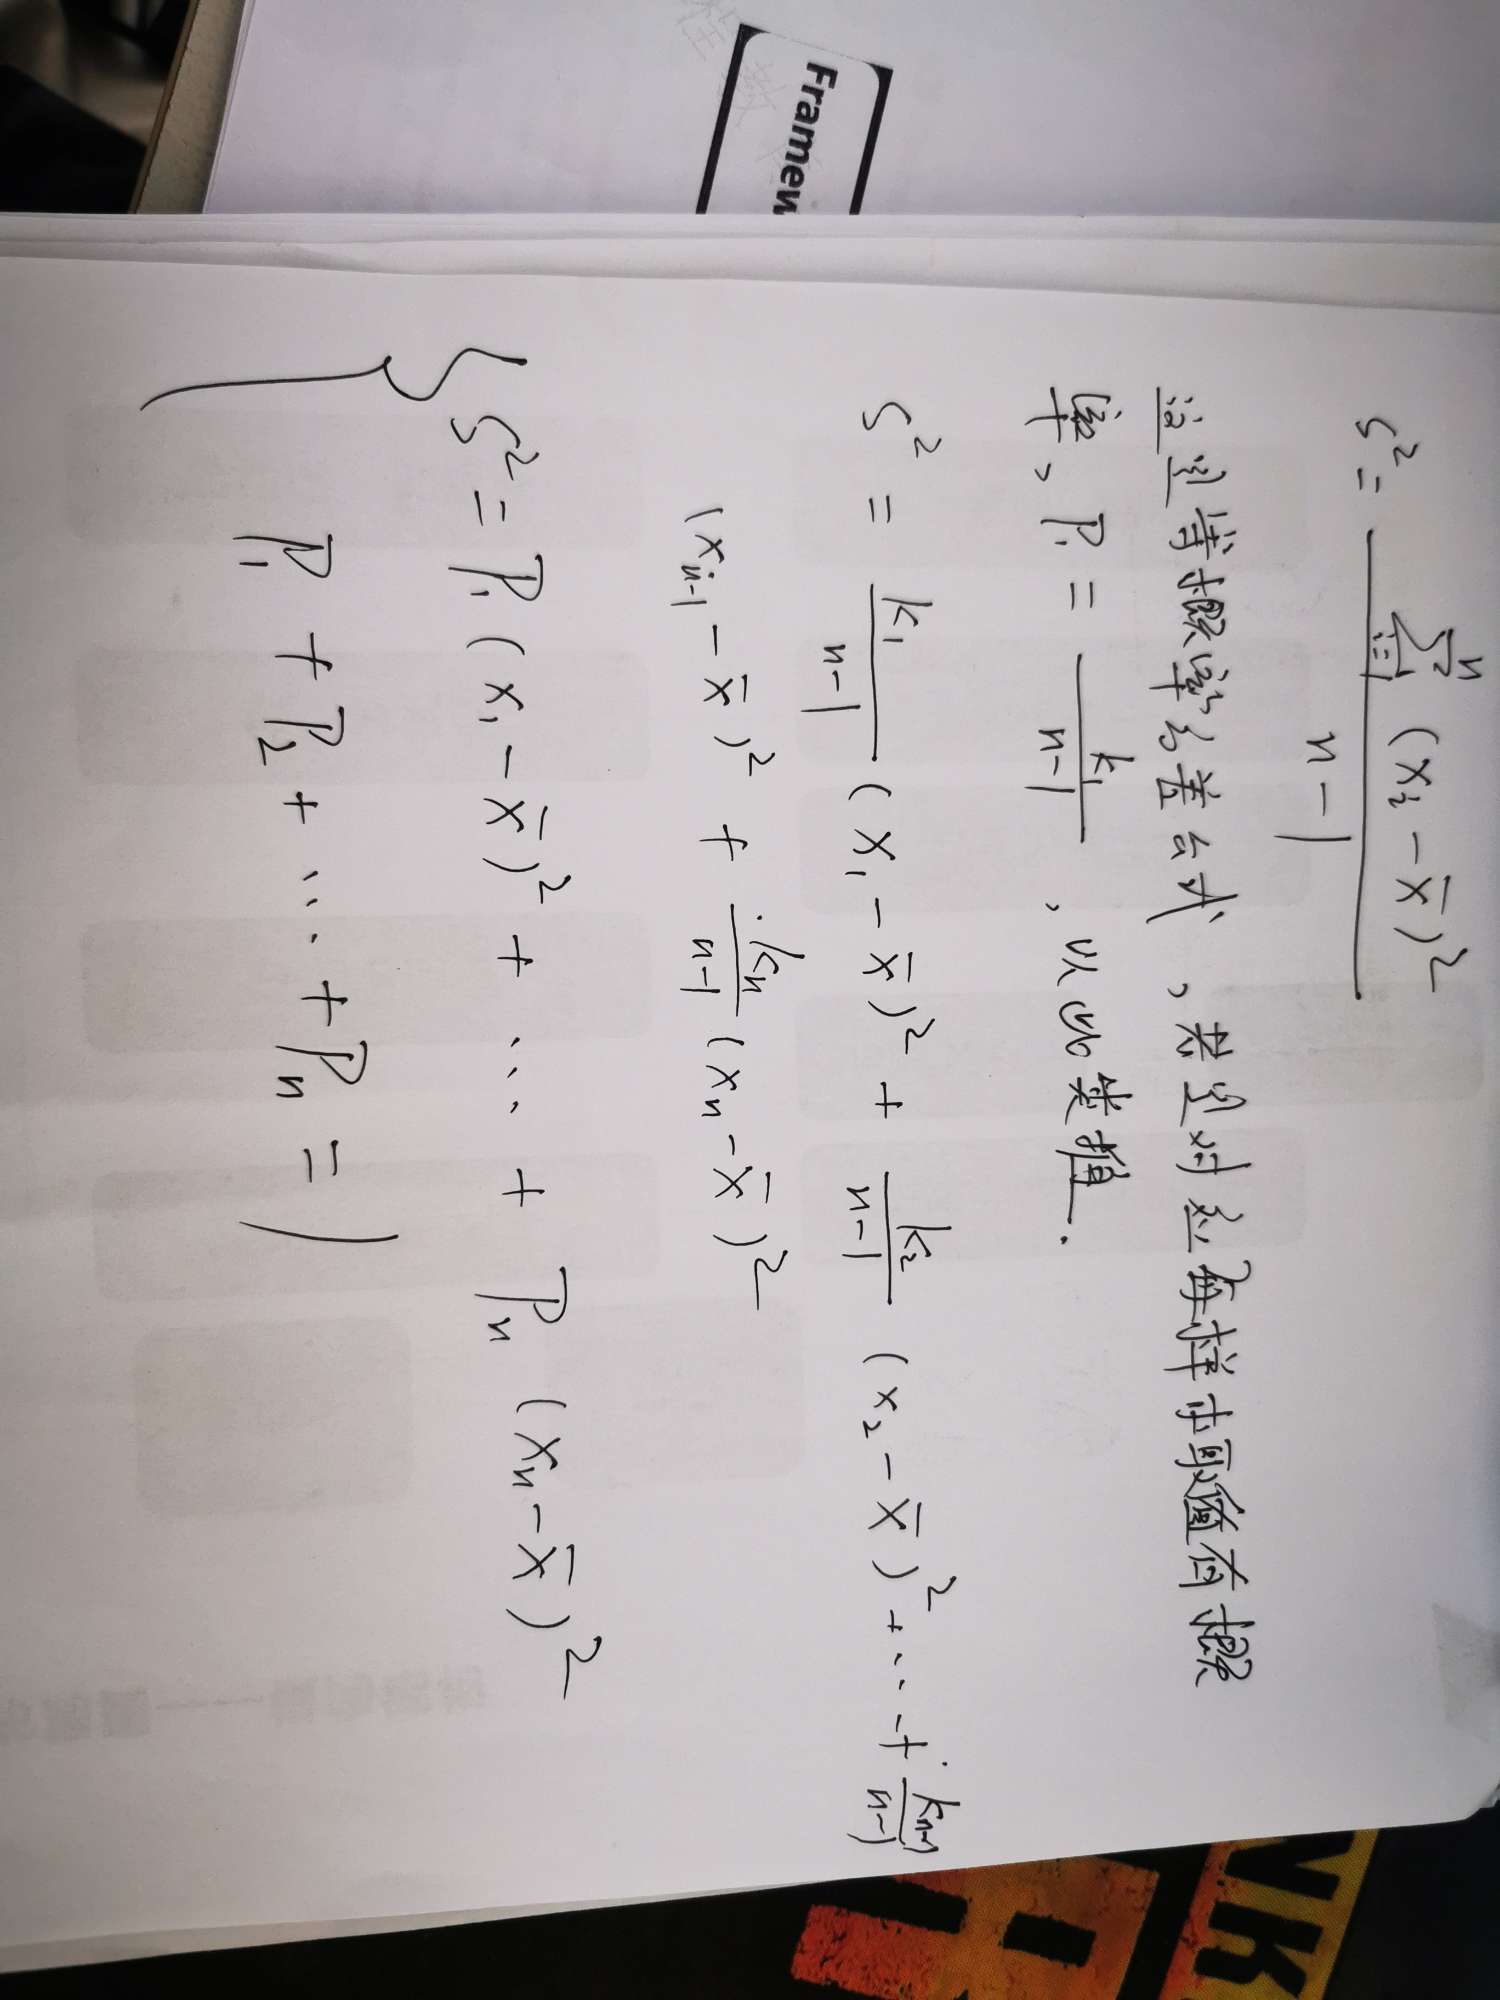 Framew
S² = \frac{\sum_{i=1}^{n} (x_i - \bar{x})^2}{n-1}
这里当概率方差公式，若是对应每样本取值有概
率，P₁ = \frac{k_1}{n-1}，以此类推.
S² = \frac{k_1}{n-1} (x_1 - \bar{x})² + \frac{k_2}{n-1} (x_2 - \bar{x})² + … + \frac{k_{n-1}}{n-1}
(x_{n-1} - \bar{x})² + \frac{k_n}{n-1} (x_n - \bar{x})²
S² = P₁ (x_1 - \bar{x})² + … + P_n (x_n - \bar{x})²
P₁ + P₂ + … + P_n = 1
NK